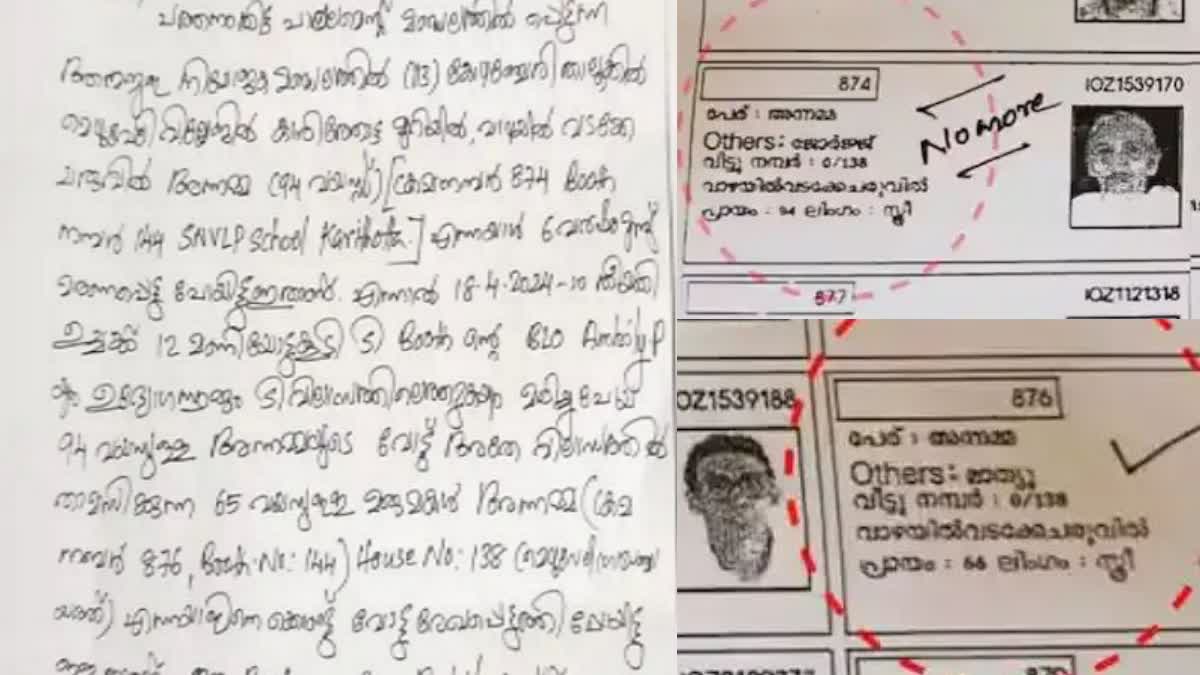 പത്തനംതിട്ട പാർലമെന്റ് മണ്ഡലത്തിൽ പെടുന്ന
നിയോജക മണ്ഡലത്തിൽ (113) കോഴഞ്ചേരി താലൂക്കിൽ
വില്ലേജിൽ കാരിത്തോട്ട മുറിയിൽ, വാഴയിൽ വടക്കേ
ചരുവിൽ അന്നമ്മ (94 വയസ്സ്) [ക്രമനമ്പർ 874 Booth
നമ്പർ 144 SNVLP School Karithota] എന്നയാൾ 6 വർഷം മുമ്പ്
മരണപ്പെട്ട് പോയിട്ടുള്ളതാണ്. എന്നാൽ 18-4-2024-ാം തീയതി
ഉച്ചക്ക് 12 മണിയോടുകൂടി ടി Booth ന്റെ BLO Ambily P
ഉദ്യോഗസ്ഥരും ടി വിലാസത്തിലെത്തുകയും മരിച്ചുപോയ
94 വയസ്സുള്ള അന്നമ്മയുടെ വോട്ട് അതേ വിലാസത്തിൽ
താമസിക്കുന്ന 65 വയസുള്ള മരുമകൾ അന്നമ്മ (ക്രമ
നമ്പർ 876, Booth No: 144) House No: 138
എന്നയാളിനെ കൊണ്ട് വോട്ട് രേഖപ്പെടുത്തി പോയിട്ടു
874
IOZ1539170
പേര് : അന്നമ്മ
Others: ജോർജ്ജ്
വീട്ടു നമ്പർ : 0/138
വാഴയിൽവടക്കേചരുവിൽ
പ്രായം : 94 ലിംഗം : സ്ത്രീ
No more
877
IOZ1121318
OZ1539188
876
പേര് : അന്നമ്മ
Others: മാത്യു
വീട്ടു നമ്പർ : 0/138
വാഴയിൽവടക്കേചരുവിൽ
പ്രായം : 66 ലിംഗം : സ്ത്രീ